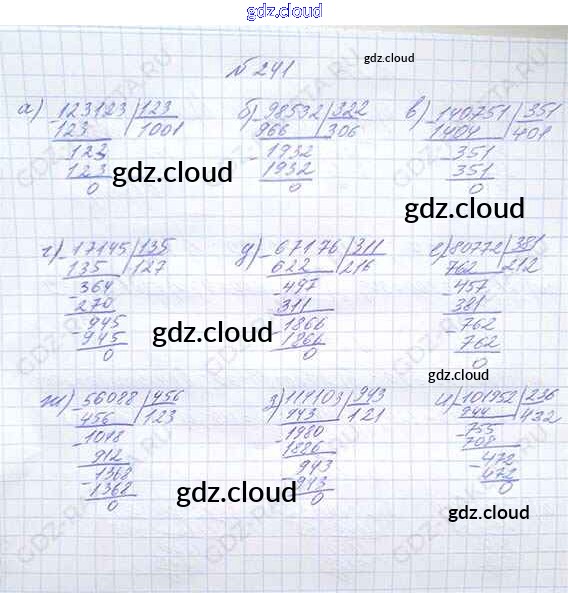 gdz.cloud
№ 241
gdz.cloud
а) - 123123 | 123
123 | 1001
- 123
123
0
gdz.cloud
б) - 98532 | 322
966 | 306
- 1932
1932
0
в) - 140751 | 351
1404 | 401
- 351
351
0
gdz.cloud
г) - 17145 | 135
135 | 127
- 364
270
- 945
945
0
gdz.cloud
д) - 67176 | 311
622 | 216
- 497
311
- 1866
1866
0
е) - 80772 | 381
762 | 212
- 457
381
- 762
762
0
gdz.cloud
ж) - 56088 | 456
456 | 123
- 1048
912
- 1368
1368
0
gdz.cloud
з) - 114103 | 943
943 | 121
- 1980
1886
- 943
943
0
и) - 101952 | 236
944 | 432
- 755
708
- 472
472
0
gdz.cloud